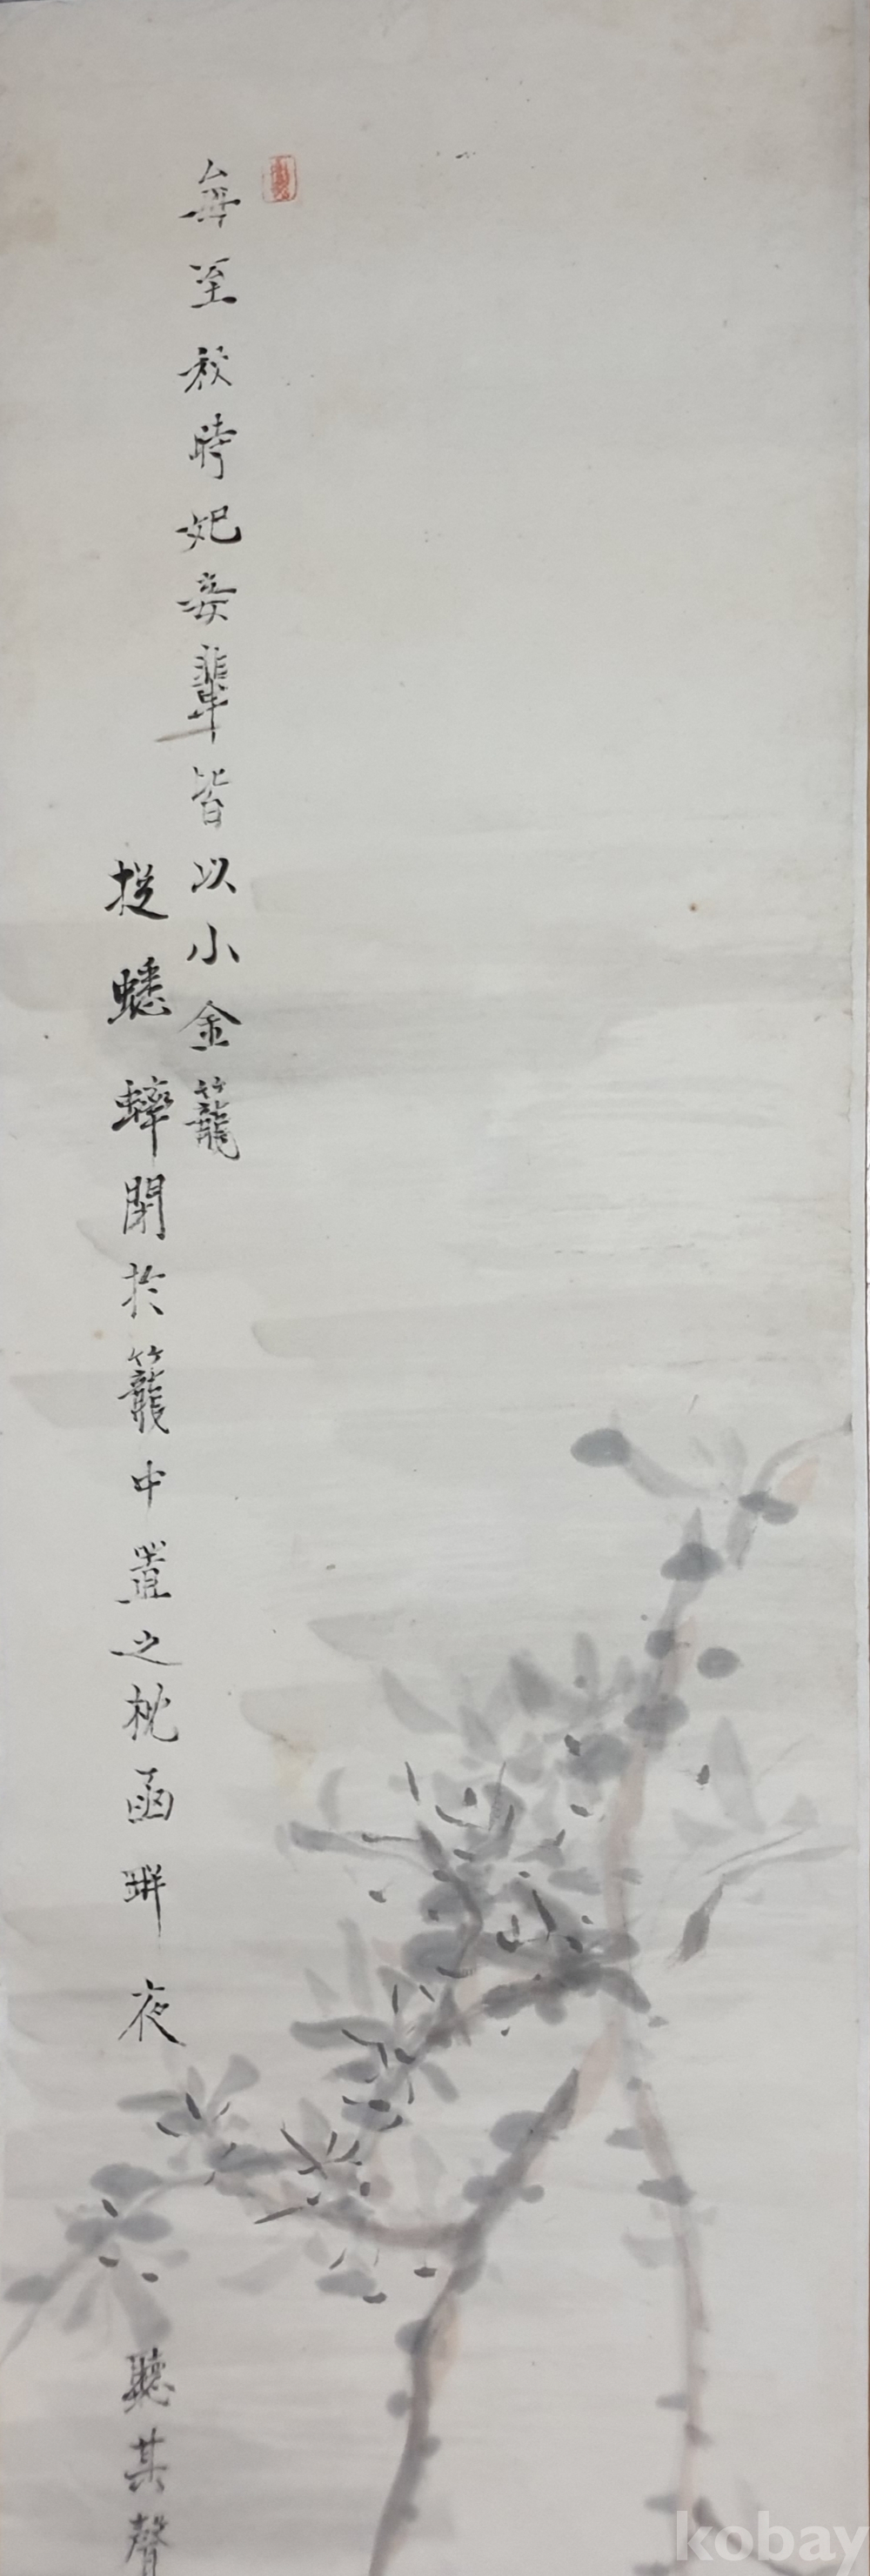 每至秋時妃妾輩皆以小金籠
捉蟋蟀閉於籠中置之枕函畔夜聽其聲
kobay